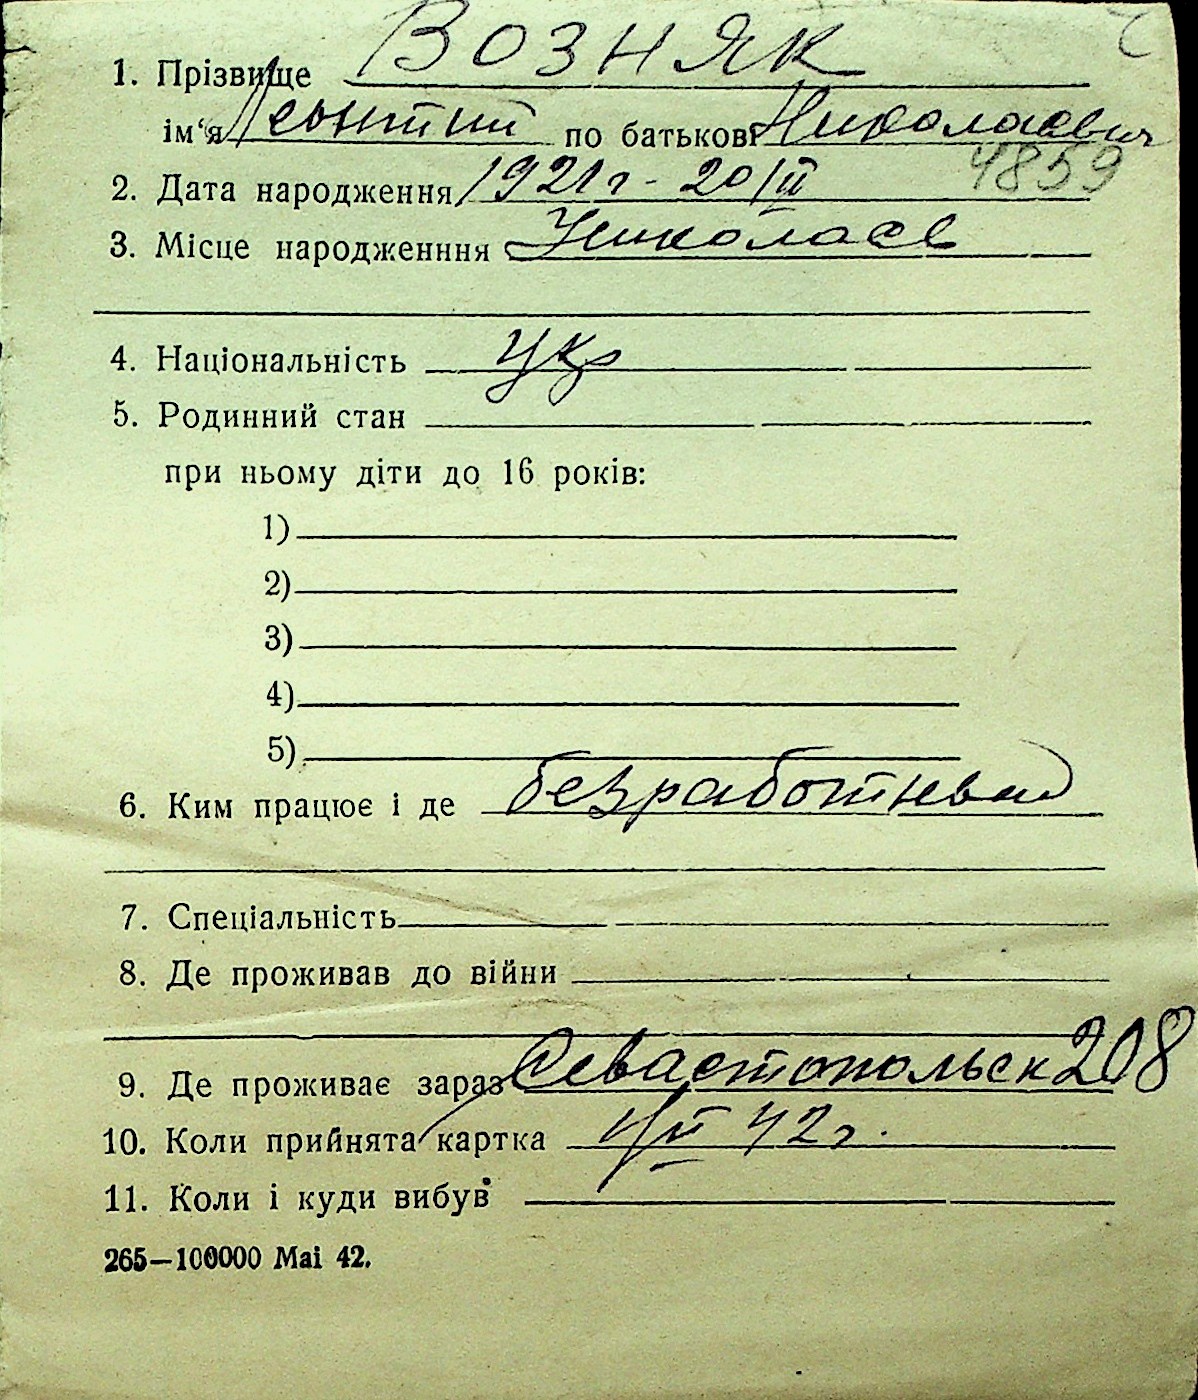 1. Прізвище ВОЗНЯК
ім'я Леонтий по батькові Николаевич
4859
2. Дата народження 1921 г - 20/III
3. Місце народженння Николаев
4. Національність укр
5. Родинний стан
при ньому діти до 16 років:
1)
2)
3)
4)
5)
6. Ким працює і де безработный
7. Спеціальність
8. Де проживав до війни
9. Де проживає зараз Севастопольск 208
10. Коли прийнята картка 42 г.
11. Коли і куди вибув
265—100000 Mai 42.